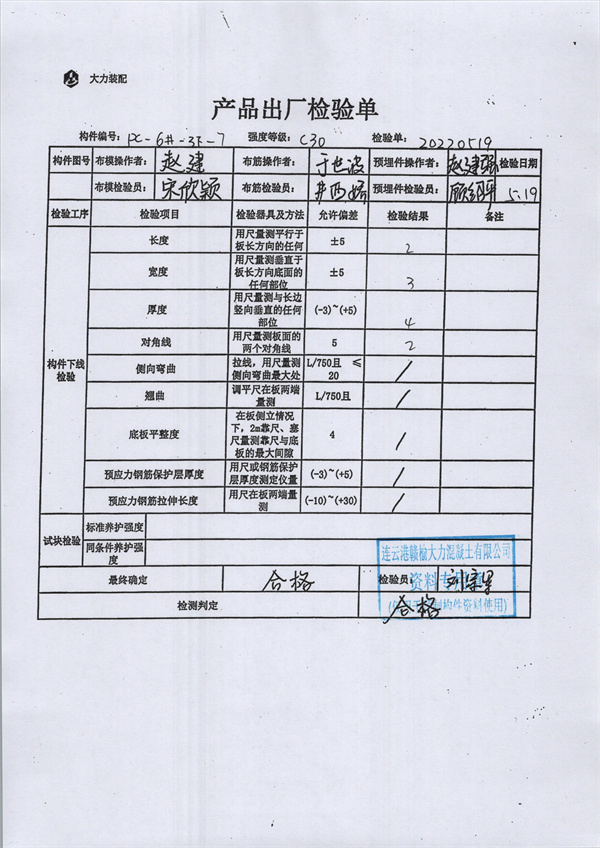 大力装配
产品出厂检验单
构件编号: PC-6#-3F-7 强度等级: C30 检验单: 20220519
构件图号 布模操作者: 赵建 布筋操作者: 于世波 预埋件操作者: 赵建强 检验日期
布模检验员: 宋欣颖 布筋检验员: 预埋件检验员: 5.19
检验工序 检验项目 检验器具及方法 允许偏差 检验结果 备注
构件下线检验
长度 用尺量测平行于板长方向的任何 ±5 2
宽度 用尺量测垂直于板长方向底面的任何部位 ±5 3
厚度 用尺量测与长边竖向垂直的任何部位 (-3)~(+5) 4
对角线 用尺量测板面的两个对角线 5 2
侧向弯曲 拉线,用尺量测侧向弯曲最大处 L/750且 ≤20 /
翘曲 调平尺在板两端量测 L/750且 /
底板平整度 在板侧立情况下,2m靠尺、塞尺量测靠尺与底板的最大间隙 4 /
预应力钢筋保护层厚度 用尺或钢筋保护层厚度测定仪量 (-3)~(+5) /
预应力钢筋拉伸长度 用尺在板两端量测 (-10)~(+30) /
试块检验 标准养护强度
同条件养护强度
连云港赣榆大力混凝土有限公司
最终确定 合格 检验员:
资料专用章
检测判定 合格
构件资料使用)